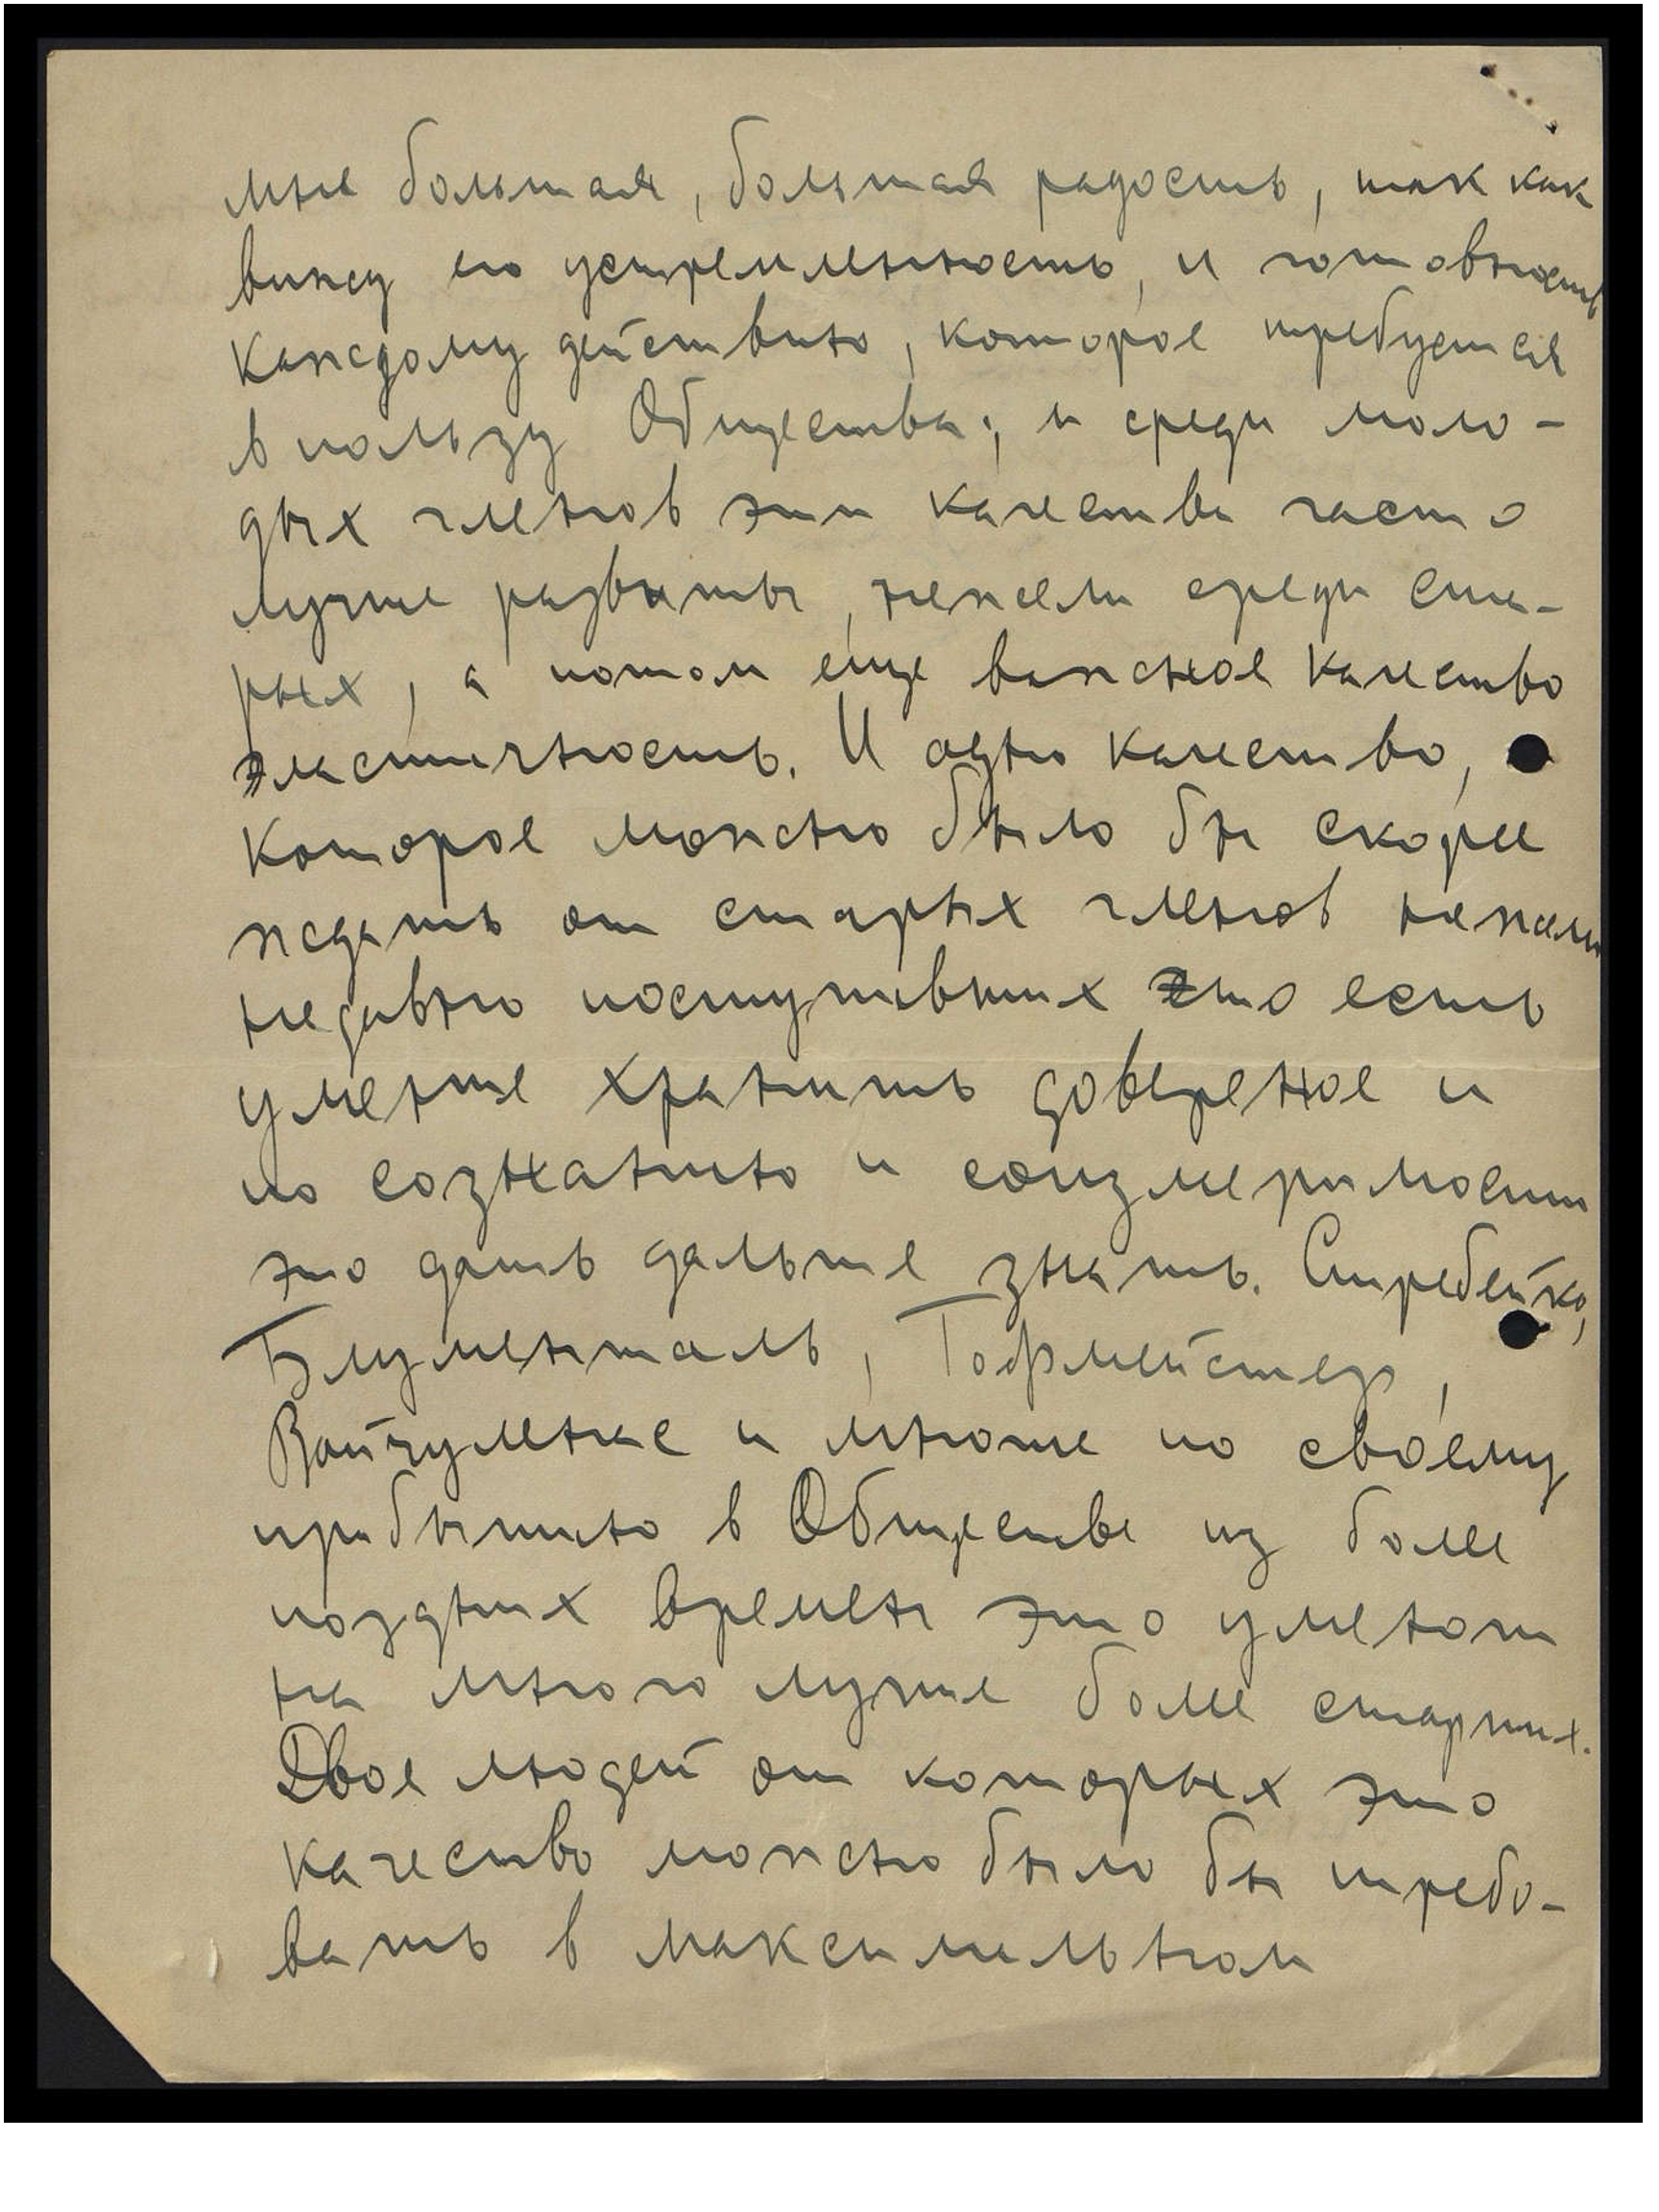 мне большая, большая радость, так как
вижу его устремленность, и готовность
каждому действию, которое требуется
в пользу Общества; и среди моло-
дых членов эти качества часто
лучше развиты, нежели среди ста-
рых, а потом еще важное качество
эластичность. И одно качество,
которое можно было бы скорее
ждать от старых членов нежели
недавно поступивших это есть
умение хранить доверенное и
по сознанию и соизмеримости
это дать дальше знать. Стребейко,
Блументаль, Гофмейстер,
Вайчулёнис и многие по своему
прибытию в Обществе из более
поздних времен это умеют
на много лучше более старших.
Двое людей от которых это
качество можно было бы требо-
вать в максимальном